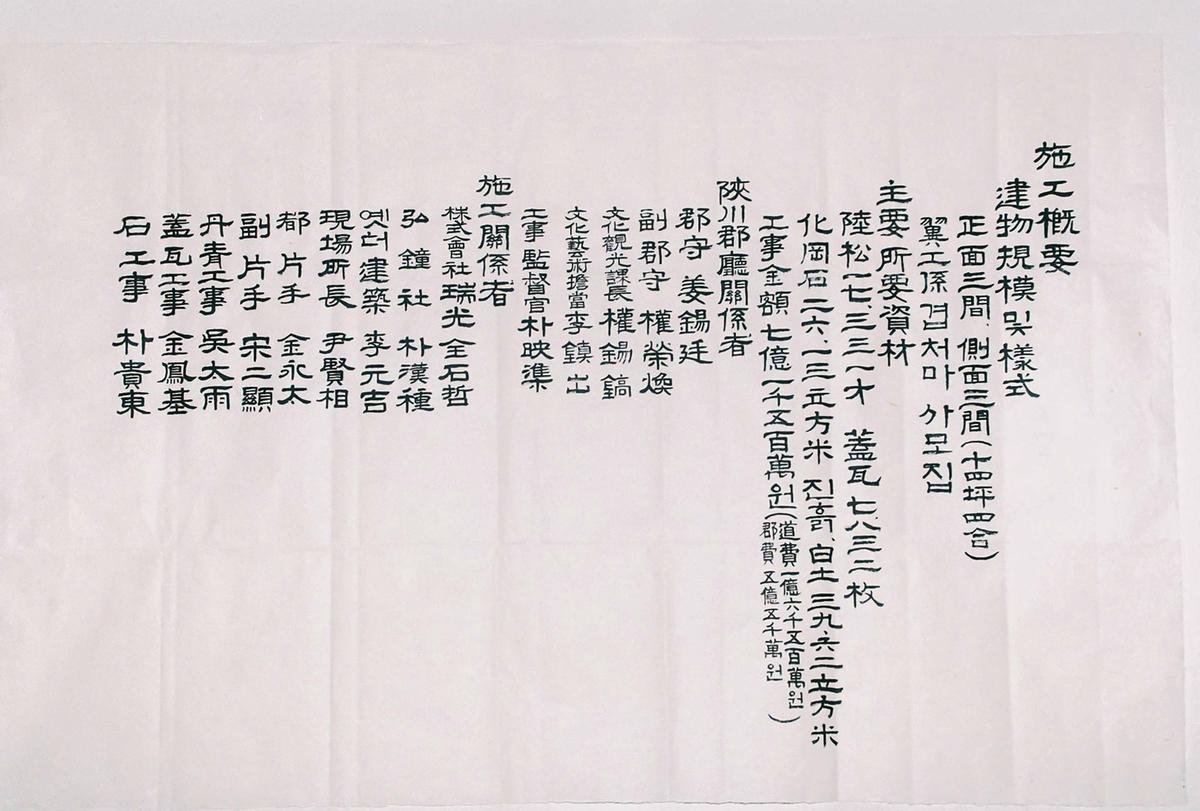 施工槪要
建物規模 및 樣式
正面三間、側面三間(十四坪四合)
翼工係 겹처마 사모집
主要所要資材
陸松 一七、三三一才 蓋瓦 七、八三二枚
化岡石 二六、一三立方米 진흙、白土 三九、六二立方米
工事金額 七億一千五百萬원(道費 一億六千五百萬원
郡費 五億五千萬원)
陜川郡廳關係者
郡守 姜錫廷
副郡守 權榮煥
文化觀光課長 權錫鎬
文化藝術擔當 李鎭出
工事監督官 朴映準
施工關係者
株式會社瑞光 全石哲
弘鐘社 朴漢種
옛터建築 李元吉
現場所長 尹賢相
都片手 金永太
副片手 宋二顯
丹靑工事 吳太雨
蓋瓦工事 金鳳基
石工事 朴貴東